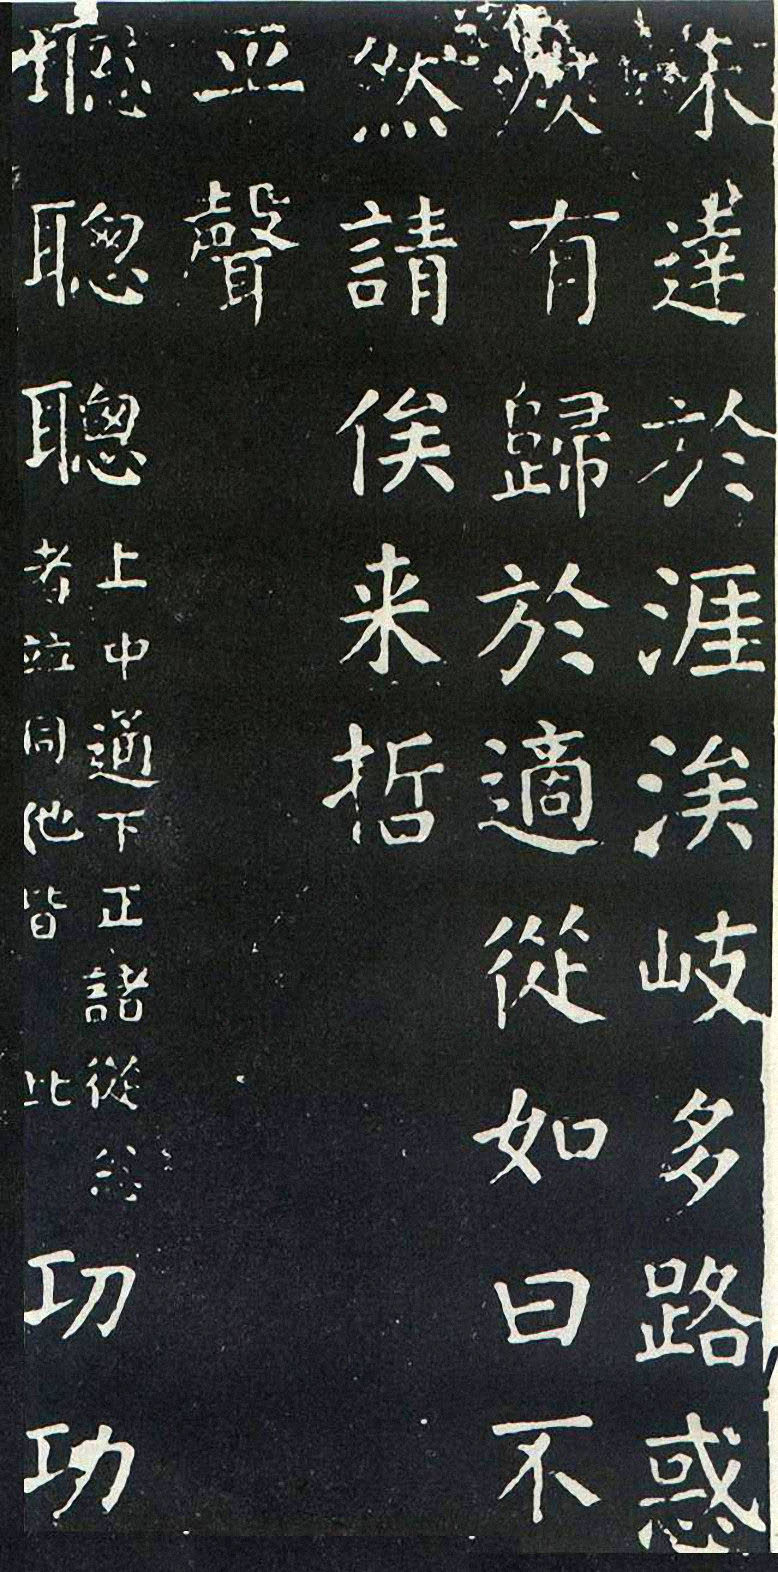 未達於涯涘岐多路惑
庶有歸於適從如曰不
然請俟来哲
平聲
聡聦聰上中通下正諸從忩者並同他皆此㓛功